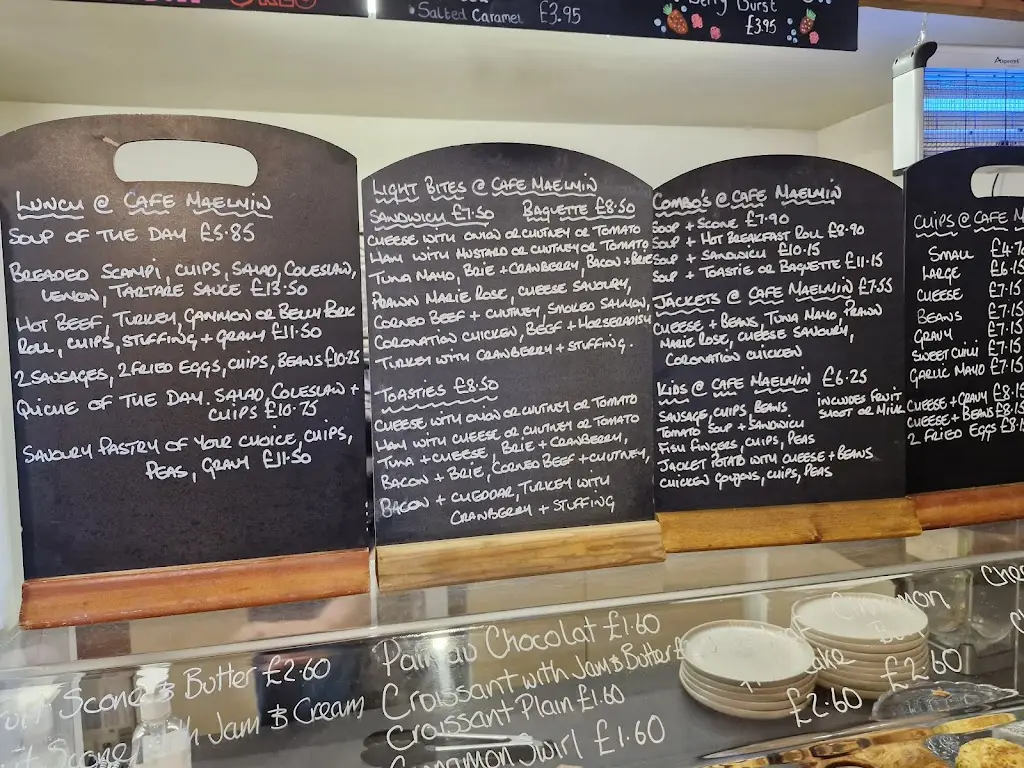 Salted Caramel £3.95
Berry Burst
£3.95
LUNCH @ CAFE MAELMIN
SOUP OF THE DAY £5.85
BREADED SCAMPI, CHIPS, SALAD, COLESLAW,
LEMON, TARTARE SAUCE £13.50
HOT BEEF, TURKEY, GAMMON OR BELLY PORK
ROLL, CHIPS, STUFFING, + GRAVY £11.50
2 SAUSAGES, 2 FRIED EGGS, CHIPS, BEANS £10.25
QUICHE OF THE DAY. SALAD, COLESLAW +
CHIPS £10.75
SAVOURY PASTRY OF YOUR CHOICE, CHIPS,
PEAS, GRAVY £11.50
LIGHT BITES @ CAFE MAELMIN
SANDWICH £7.50 BAGUETTE £8.50
CHEESE WITH ONION OR CHUTNEY OR TOMATO
HAM WITH MUSTARD OR CHUTNEY OR TOMATO
TUNA MAYO, BRIE + CRANBERRY, BACON + BRIE
PRAWN MARIE ROSE, CHEESE SAVOURY,
CORNED BEEF + CHUTNEY, SMOKED SALMON,
CORONATION CHICKEN, BEEF + HORSERADISH
TURKEY WITH CRANBERRY + STUFFING.
TOASTIES £8.50
CHEESE WITH ONION OR CHUTNEY OR TOMATO
HAM WITH CHEESE OR CHUTNEY OR TOMATO
TUNA + CHEESE, BRIE + CRANBERRY,
BACON + BRIE, CORNED BEEF + CHUTNEY,
BACON + CHEDDAR, TURKEY WITH
CRANBERRY + STUFFING
COMBO'S @ CAFE MAELMIN
SOUP + SCONE £7.90
SOUP + HOT BREAKFAST ROLL £8.90
SOUP + SANDWICH £10.15
SOUP + TOASTIE OR BAGUETTE £11.15
JACKETS @ CAFE MAELMIN £7.55
CHEESE + BEANS, TUNA MAYO, PRAWN
MARIE ROSE, CHEESE SAVOURY,
CORONATION CHICKEN
KIDS @ CAFE MAELMIN £6.25
INCLUDES FRUIT
SHOOT OR MILK
SAUSAGE, CHIPS, BEANS
TOMATO SOUP + SANDWICH
FISH FINGERS, CHIPS, PEAS
JACKET POTATO WITH CHEESE + BEANS
CHICKEN GOUJONS, CHIPS, PEAS
CHIPS @ CAFE M
SMALL £4.7
LARGE £6.15
CHEESE £7.15
BEANS £7.15
GRAVY £7.15
SWEET CHILLI £7.15
GARLIC MAYO £7.15
CHEESE + GRAVY £8.15
CHEESE + BEANS £8.15
2 FRIED EGGS £8.1
Scone & Butter £2.60
Scone with Jam & Cream
Scone
Pain au Chocolat £1.60
Croissant with Jam & Butter £
Croissant Plain £1.60
Cinnamon Swirl £1.60
£2.60
Cinnamon
£2.60